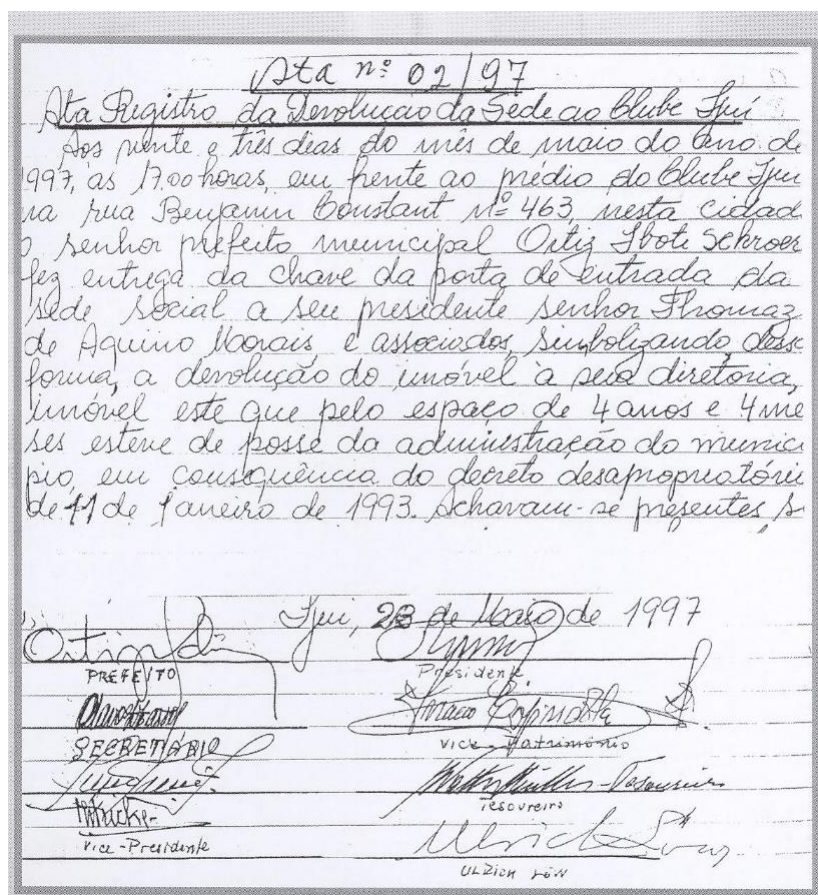 Ata nº 02/97
Ata Registro da Devolução da Sede ao Clube Ijuí
Aos vinte e três dias do mês de maio do ano de
1997, às 17.00 horas, em frente ao prédio do Clube Ijuí
na rua Benjamin Constant nº 463, nesta cidad
o senhor prefeito municipal Ortiz Iboti Schroer
fez entrega da chave da porta de entrada da
sede social a seu presidente senhor Thomaz
de Aquino Morais e associados, simbolizando desse
forma, a devolução do imóvel à sua diretoria,
imóvel este que pelo espaço de 4 anos e 4 me
ses esteve de posse da administração do municí
pio, em consequência do decreto desapropriatório
de 11 de janeiro de 1993. Achavam-se presentes, s
Ijuí, 23 de Maio de 1997
Ortiz
PREFEITO
Presidente
SECRETÁRIO
Vice-Patrimônio
Walter Müller - Tesoureiro
Tesoureiro
Vice-Presidente
Ulrich Löw
ULRICH LÖW